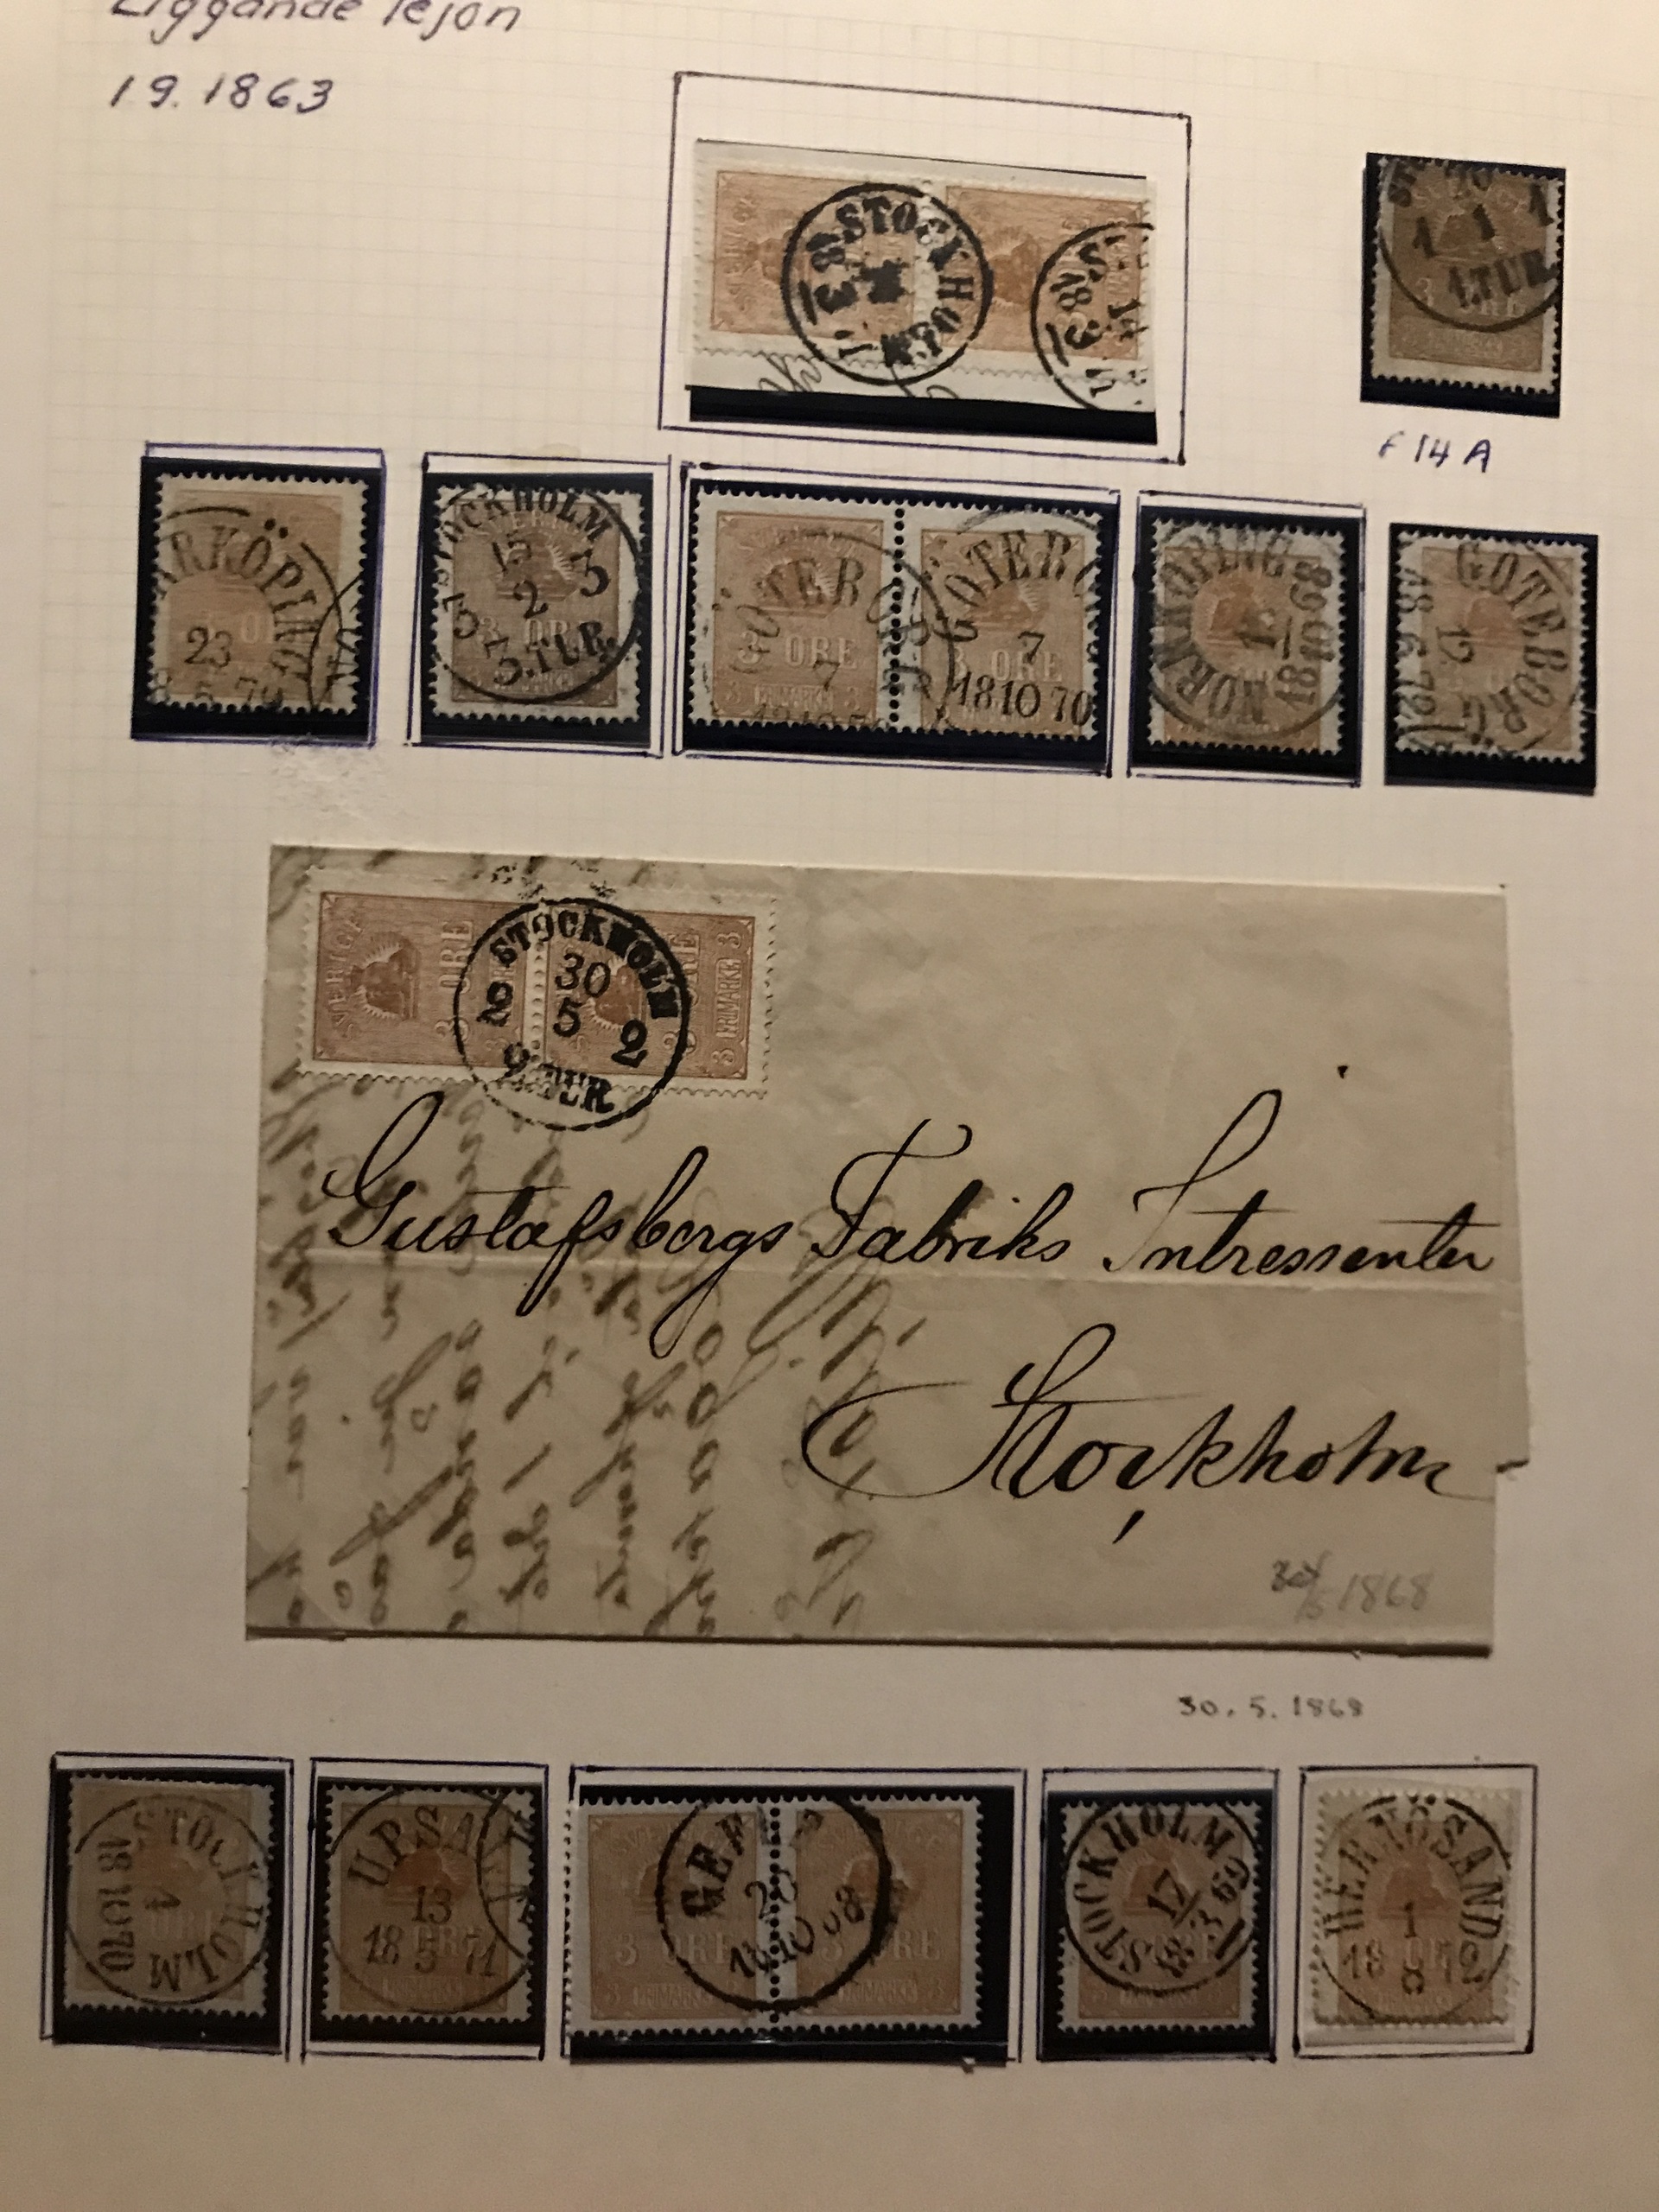 Liggande lejon
1.9.1863
STOCKHOLM
1 1 1
1.TUR.
F 14 A
ARKÖPING
23
STOCKHOLM
2
3.TUR.
3 ÖRE
GÖTEBORG
7
3 ÖRE
FRIMÄRKE
GÖTEBORG
7
18 10 70
3 ÖRE
NORRKÖPING
1868
GÖTEBORG
18 6 72
SVERIGE
3 ÖRE
STOCKHOLM
30
2 5 2
2.TUR
3 FRIMÄRKE 3
Gustafsbergs Fabriks Intressenter
Stockholm
30/5 1868
30.5.1868
STOCKHOLM
4
18 10 70
UPSALA
13
18 5 71
GEFLE
3 ÖRE
3 ÖRE
FRIMÄRKE
STOCKHOLM
17
3
HERNÖSAND
1
18 72
8